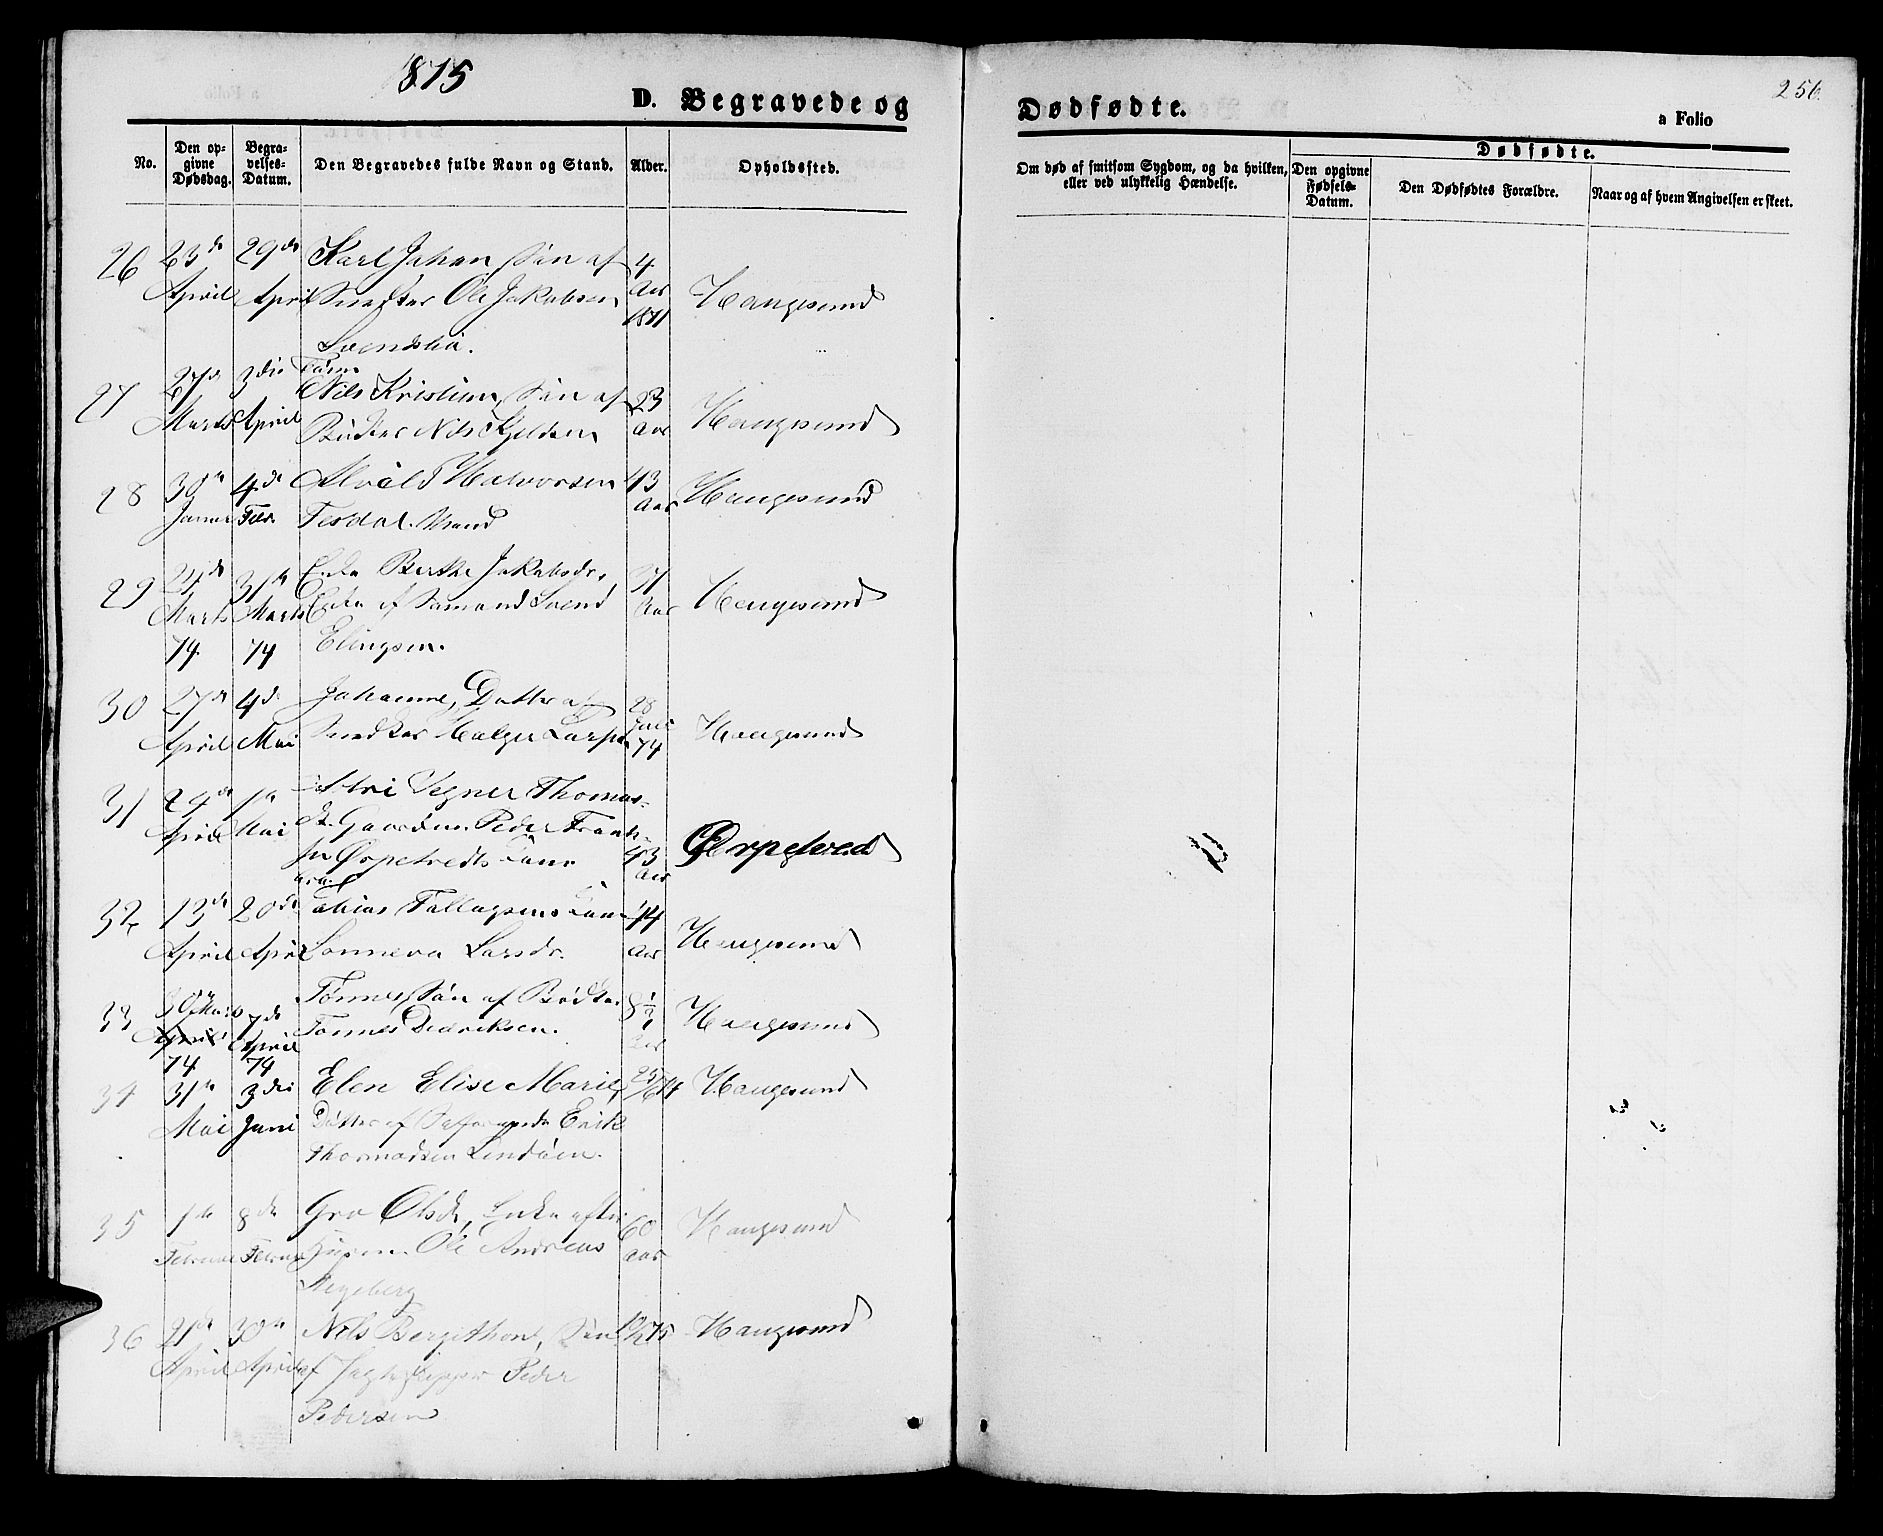 1875
D. Begravede og
Dødfødte.
256.
a Folio
No.
Den opgivne Dødsdag.
Begravelses-Datum.
Den Begravedes fulde Navn og Stand.
Alder.
Opholdssted.
Om død af smitsom Sygdom, og da hvilken, eller ved ulykkelig Hændelse.
Dødfødte.
Den opgivne Fødsels-Datum.
Den Dødfødtes Forældre.
Naar og af hvem Angivelsen er skeet.
26 23de April 29de April Karl Johan Søn af 4 Aar 1871 Haugesund
Snedker Ole Jakobsen
27 27de Marts 3die April Nils Kristian, Søn af 23 Aar Haugesund
Bødker Nils Kjeldsen
28 30te Januar 4de Febr. Halvorsen 43 Aar Haugesund
Tesdal.
29 Marts 74 31te Marts 74 Enke Berthe Jakobsdr. 37 Aar Haugesund
Enke af Sømand Svend
Elingsen.
30 27de April 4de Mai Johanne, Datter af 28 Juli 74 Haugesund
Snedker Holger
31 April 1te Mai Thomas-
Gaardm. Peder 43 Aar Ørpetved
Ørpetvedts Kone
32 13de April 20de April Tobias Kone 74 Aar Haugesund
Larsdr.
33 30 Marts 74 7de April 74 Tønnes, Søn af Bødker 8 1/2 Aar Haugesund
Tønnes Didriksen.
34 31te Mai 3die Juni Elen Elise Marie, 25/6 74 Haugesund
Datter af Søfarende Erik
Thormodsen Lindøen.
35 1te Februar 8de Februar Gro Olsdr, Enke efter 60 Aar Haugesund
Husm. Ole Andreas
36 21de April 30te April Nils Bergithon, Søn Haugesund
af Jagtskipper Peder
Pedersen